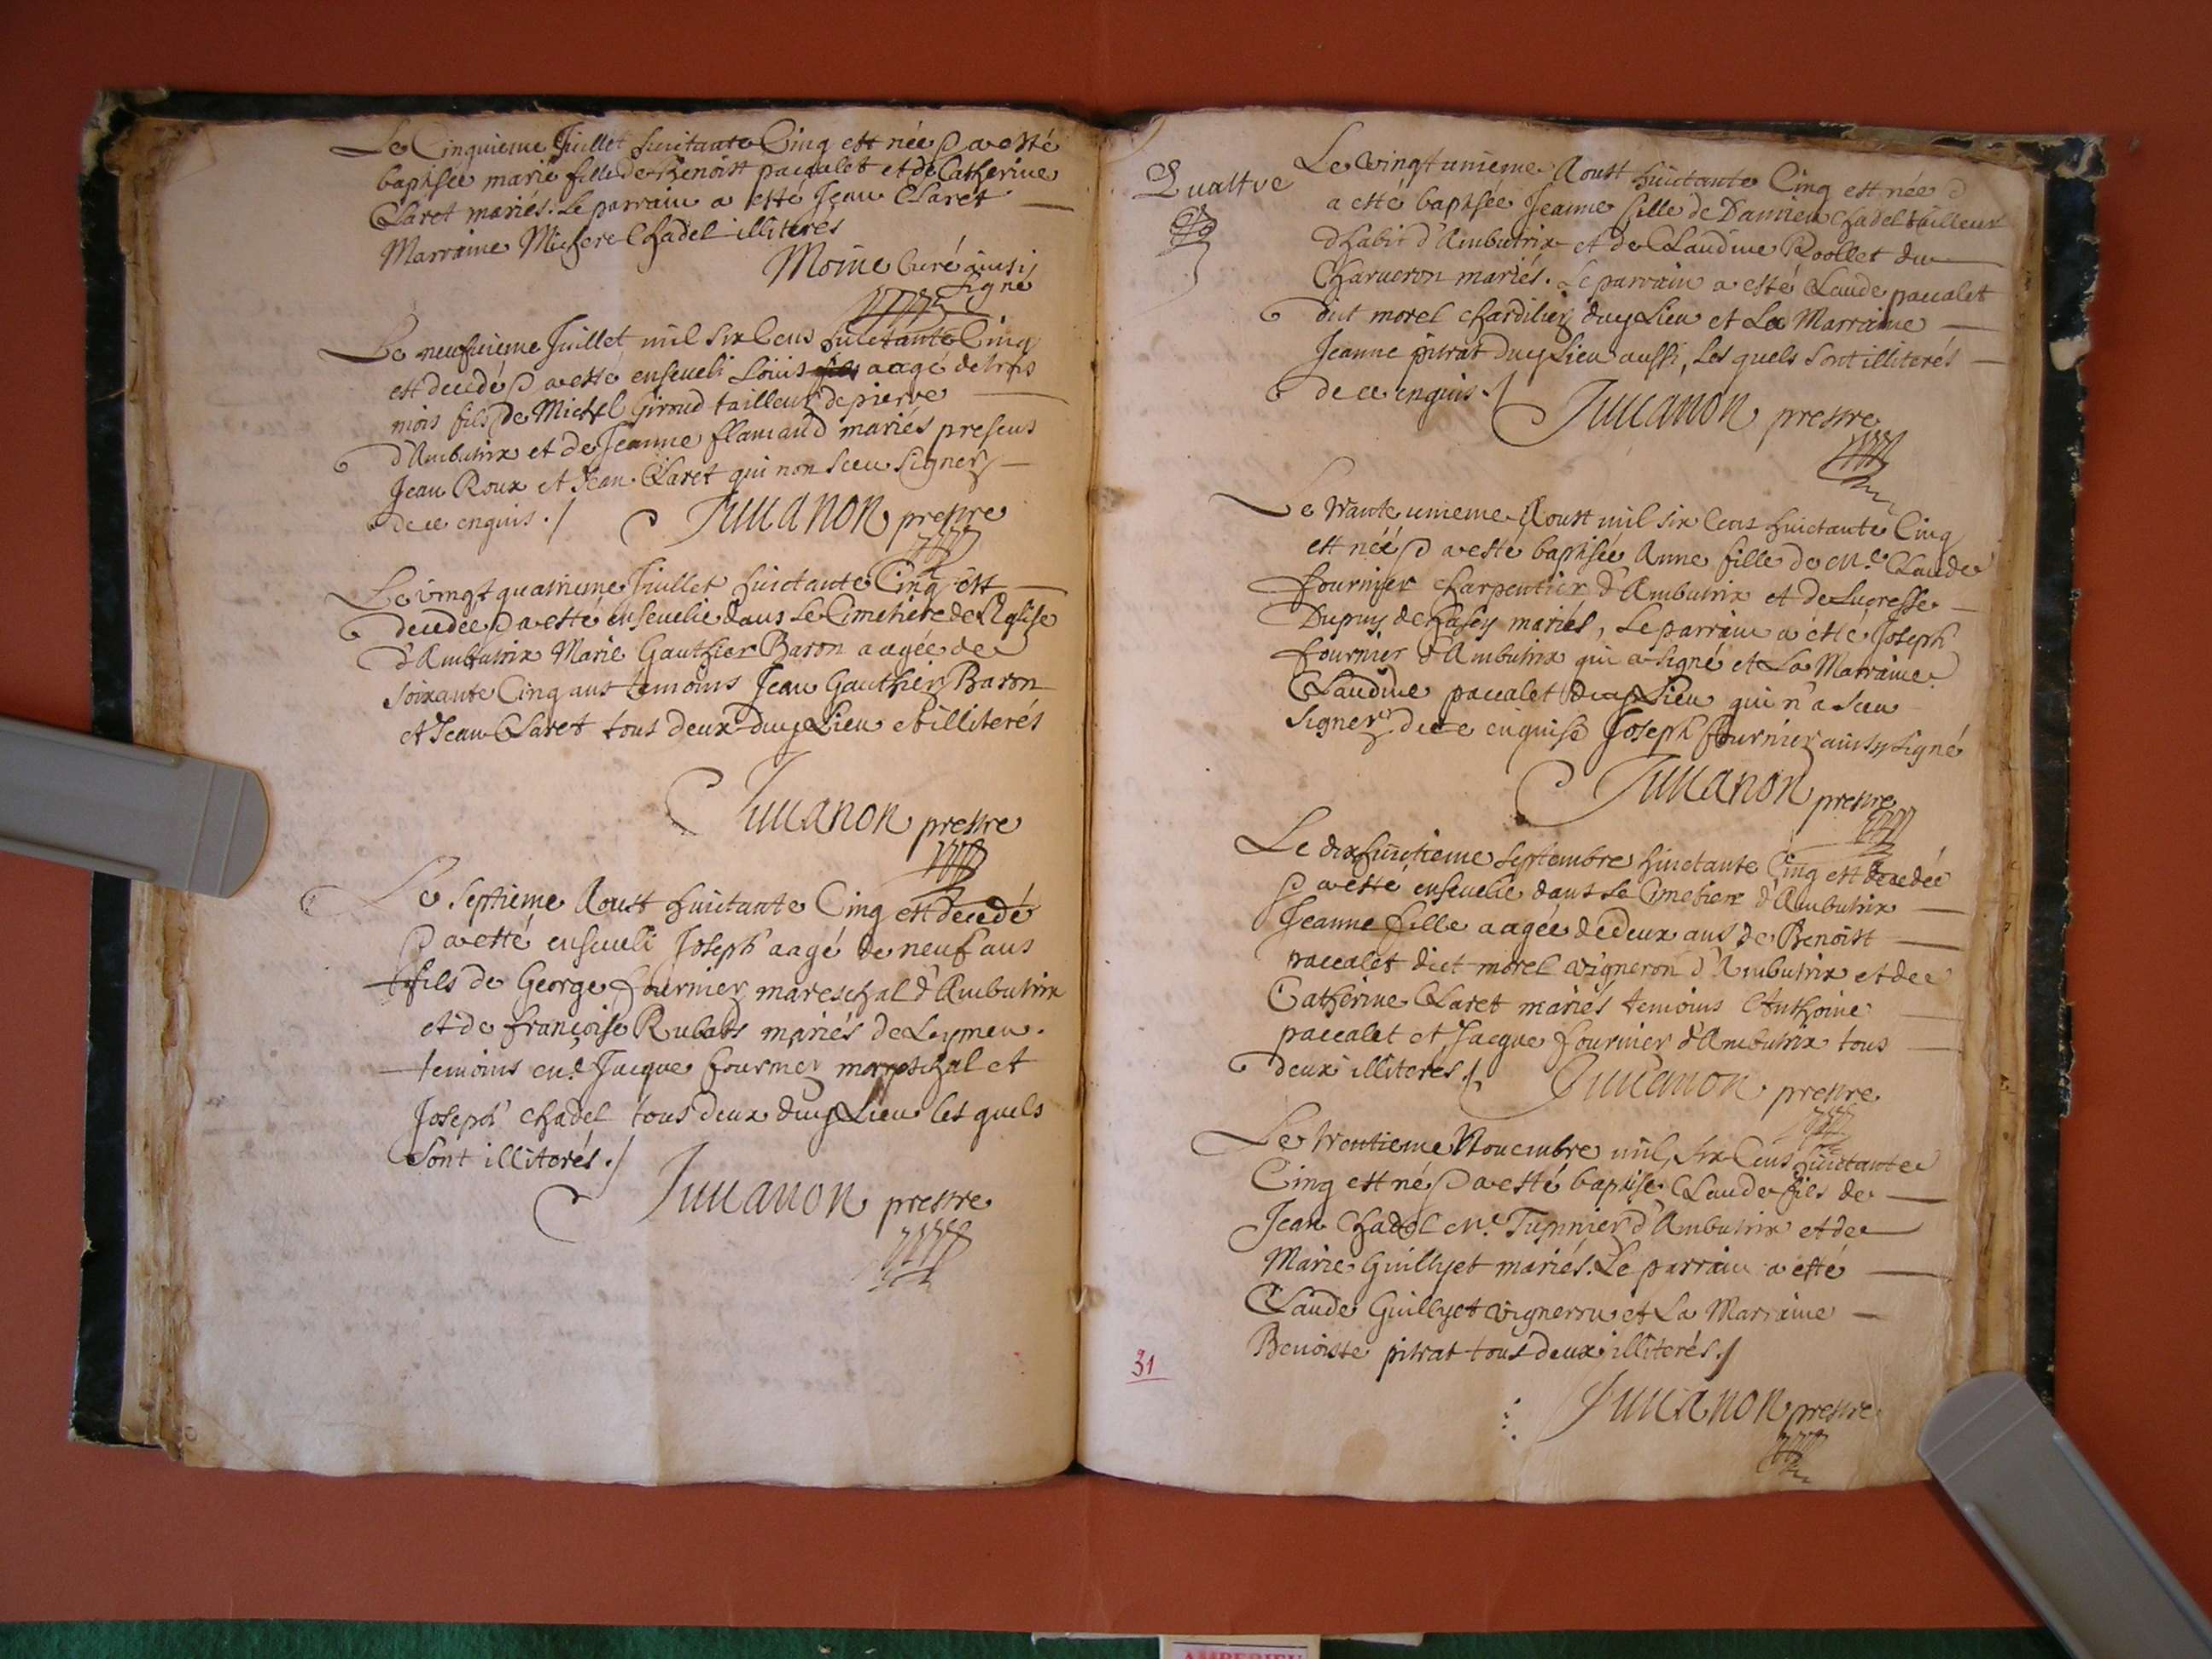 Le Cinquieme Juillet huictante Cinq est née & a esté
baptisée marie fille de Benoist paccalet et de Catherine
Claret mariés. Le parrain a esté Jean Claret
Marraine Michere Chadel illiterés
Moine Curé ainsi
signé
Le neufuieme Juillet mil six Cens huictante Cinq
est decedé & a esté enseueli Loüis aagé de trois
mois fils de Michel Giroud tailleur de pierre
d'Ambutrix et de Jeanne flamand mariés presens
Jean Roux et Jean Claret qui non sceu signer
de ce enquis ./ Juuanon prestre
Le vingt quatrieme Juillet huictante Cinq est
decedée & a esté enseuelie dans Le Cimetiere de L'Eglise
d'Ambutrix Marie Gauthier Baron aagée de
soixante Cinq ans temoins Jean Gauthier Baron
et Jean Claret tous deux duy Lieu et illiterés
Juuanon prestre
Le Septieme Aoust huictante Cinq est decedé
& a esté enseueli Joseph aagé de neuf ans
fils de George fournier mareschal d'Ambutrix
et de françoise Rubat mariés de Leymen.
temoins me Jacque fournier mareschal et
Joseph chadel tous deux duy Lieu les quels
Sont illiterés ./
Juuanon prestre
Qualtre
Le vingt unieme Aoust huictante Cinq est née &
a esté baptisée Jeanne fille de Damien chadel tailleur
d'habit d'Ambutrix et de Claudine Roollet du
Charueron mariés. Le parrain a esté Claude paccalet
dit morel chardilier duy Lieu et La Marraine
Jeanne pitrat duy Lieu aussi, Les quels sont illiterés
de ce enquis ./ Juuanon prestre
Le trante unieme Aoust mil six Cens huictante Cinq
est née & a esté baptisée Anne fille de Me Claude
fournier charpentier d'Ambutrix et de Lucresse
Dupuy de chasey mariés, Le parrain a esté Joseph
fournier d'Ambutrix qui a signé et La Marraine
Claudine paccalet duy Lieu qui n'a sceu
signer de ce enquise Joseph fournier ainsy signé
Juuanon prestre
Le dixhuictieme septembre huictante Cinq est decedée
& a esté enseuelie dans Le Cimetiere d'Ambutrix
Jeanne fille aagée de deux ans de Benoist
paccalet dict morel vigneron d'Ambutrix et de
Catherine Claret mariés temoins Anthoine
paccalet et Jacque fournier d'Ambutrix tous
deux illiterés ./ Juuanon prestre
Le trentieme Nouembre mil six Cens huictante
Cinq est né & a esté baptisé Claude fils de
Jean Chadel Me Tupinier d'Ambutrix et de
Marie Guillyet mariés. Le parrain a esté
Claude Guillyet vigneron et La Marraine
Benoiste pitrat tous deux illiterés ./
Juuanon prestre
31